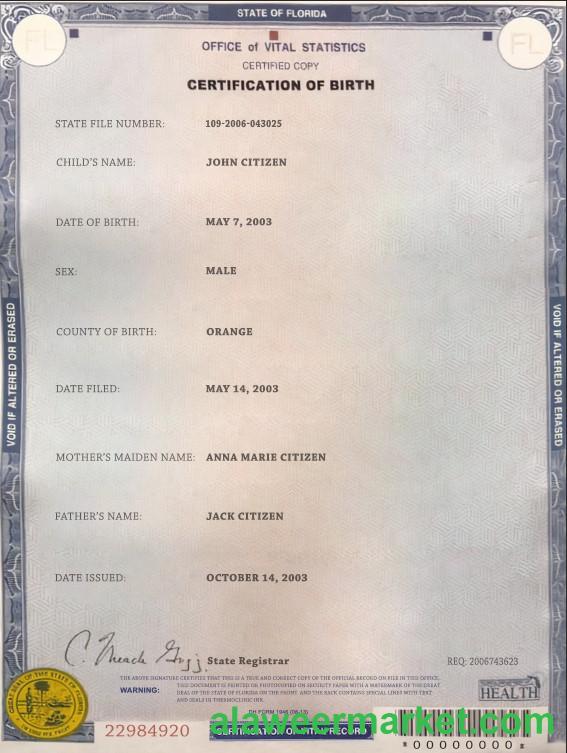 STATE OF FLORIDA
FL
FL
OFFICE of VITAL STATISTICS
CERTIFIED COPY
CERTIFICATION OF BIRTH
STATE FILE NUMBER: 109-2006-043025
CHILD'S NAME: JOHN CITIZEN
DATE OF BIRTH: MAY 7, 2003
SEX: MALE
COUNTY OF BIRTH: ORANGE
DATE FILED: MAY 14, 2003
MOTHER'S MAIDEN NAME: ANNA MARIE CITIZEN
FATHER'S NAME: JACK CITIZEN
DATE ISSUED: OCTOBER 14, 2003
VOID IF ALTERED OR ERASED
VOID IF ALTERED OR ERASED
State Registrar
REQ: 2006743623
THE ABOVE SIGNATURE CERTIFIES THAT THIS IS A TRUE AND CORRECT COPY OF THE OFFICIAL RECORD ON FILE IN THIS OFFICE.
WARNING: THIS DOCUMENT IS PRINTED OR PHOTOCOPIED ON SECURITY PAPER WITH A WATERMARK OF THE GREAT
SEAL OF THE STATE OF FLORIDA ON THE FRONT, AND THE BACK CONTAINS SPECIAL LINES WITH TEXT
AND SEALS IN THERMOCHROMIC INK.
HEALTH
DH FORM 1946 (06-13)
22984920
CERTIFICATION OF VITAL RECORD
alaweermarket.com
*00000000*